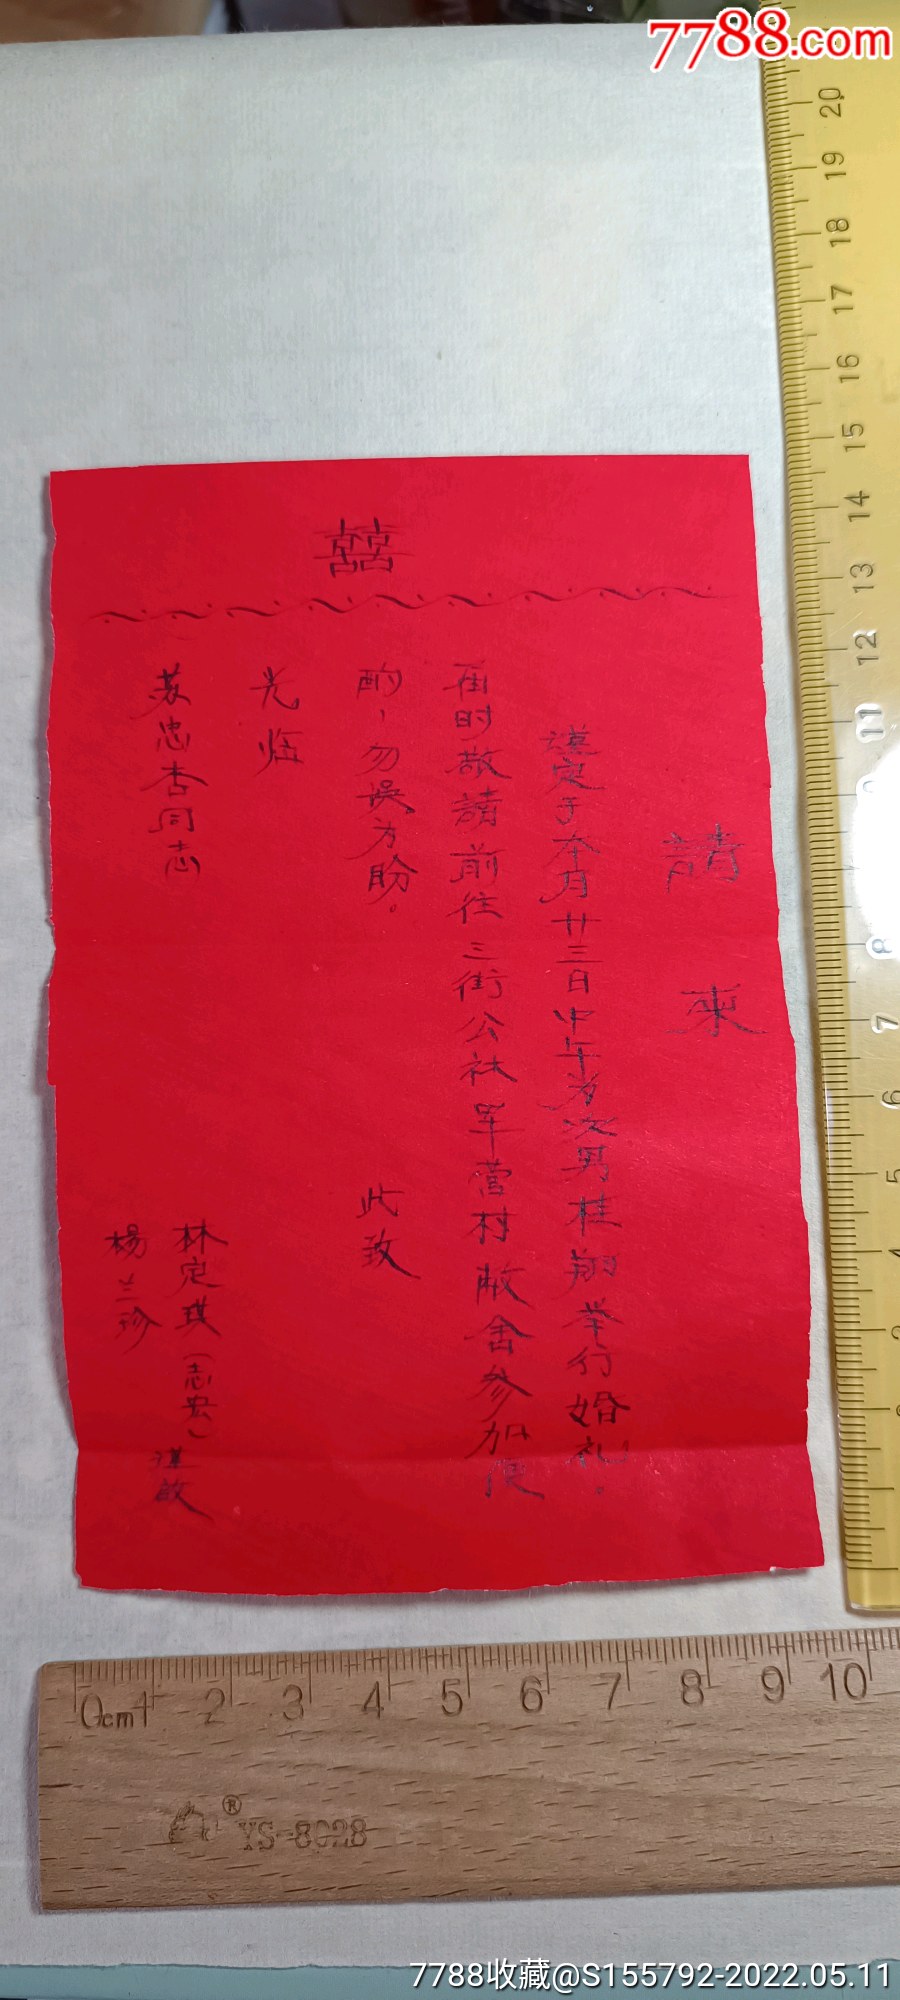 7788.com
囍
請柬
謹定于本月廿三日中午为次男桂翔举行婚礼.
届时敬請前往三街公社军营村敝舍参加便
酌，勿误为盼。 此致
光临
苏忠杏同志
林定琪（志宏）
楊兰珍 谨啟
20
19
18
17
16
15
14
13
12
11
8
7
6
5
4
0cm 1 2 3 4 5 6 7 8 9 10
® YS-8028
7788收藏@S155792-2022.05.11